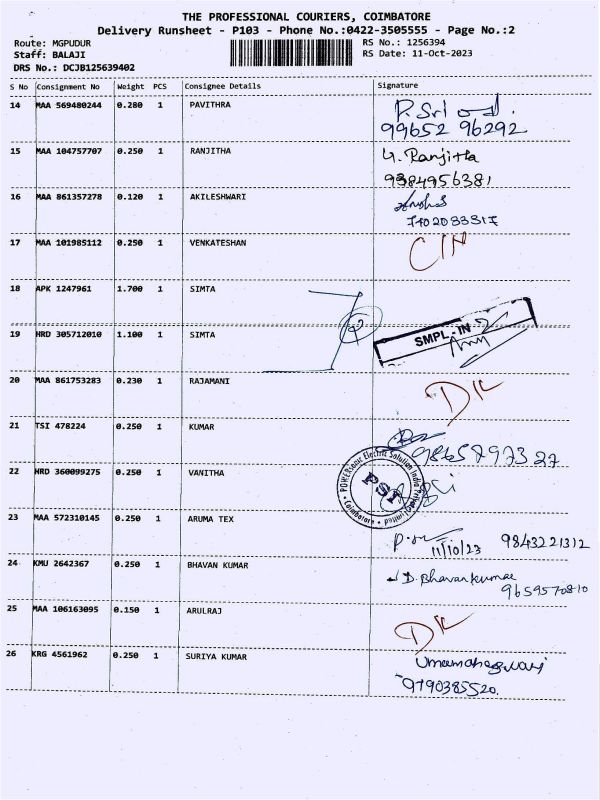 THE PROFESSIONAL COURIERS, COIMBATORE
Delivery Runsheet - P103 - Phone No.:0422-3505555 - Page No.:2
Route: MGPUDUR RS No.: 1256394
Staff: BALAJI RS Date: 11-Oct-2023
DRS No.: DCJB125639402
S No Consignment No Weight PCS Consignee Details Signature
14 MAA 569480244 0.280 1 PAVITHRA
99652 96292
15 MAA 104757707 0.250 1 RANJITHA Ranjitha
9384956381
16 MAA 861357278 0.120 1 AKILESHWARI
7402083317
17 MAA 101985112 0.250 1 VENKATESHAN
18 APK 1247961 1.700 1 SIMTA
19 HRD 305712010 1.100 1 SIMTA SMPL-IN
20 MAA 861753283 0.230 1 RAJAMANI DK
21 TSI 478224 0.250 1 KUMAR
9865797327
22 HRD 360099275 0.250 1 VANITHA PSI
23 MAA 572310145 0.250 1 ARUMA TEX
11/10/23 9843221312
24 KMU 2642367 0.250 1 BHAVAN KUMAR D. Bhavankumar
9659570810
25 MAA 106163095 0.150 1 ARULRAJ DK
26 KRG 4561962 0.250 1 SURIYA KUMAR
9790385520.